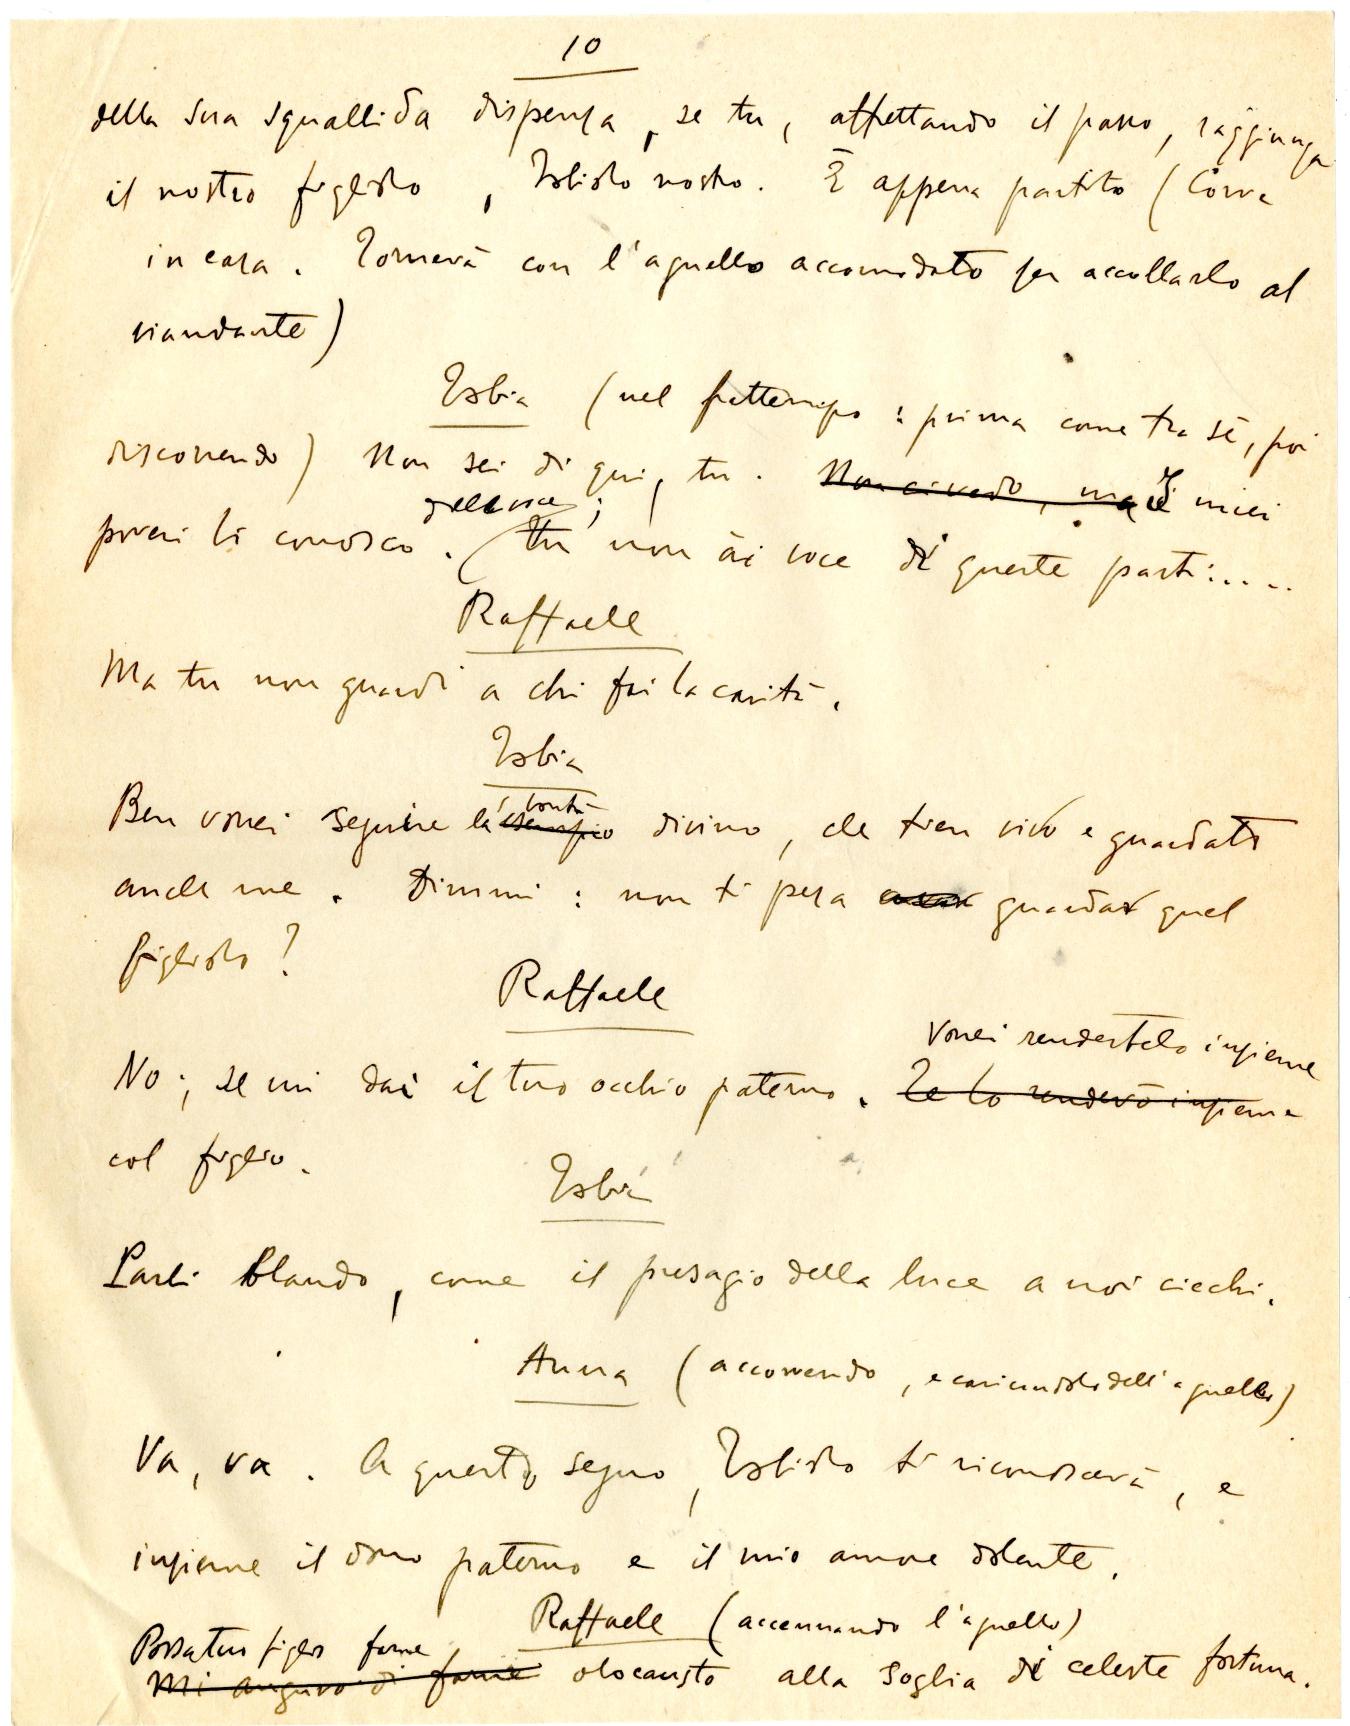 10
della sua squallida dispensa, se tu, affrettando il passo, raggiunga
il nostro figliolo, Tobiolo nostro. È appena partito (Corre
in casa. Tornerà con l'agnello accomodato per accollarlo al
viandante)
Tobia (nel frattempo: prima come tra sé, poi
discorrendo) Non sei di qui, tu. Non ci vedo, ma i miei
dalla voce;
poveri li conosco. Tu non ài voce di queste parti....
Raffaele
Ma tu non guardi a chi fai la carità.
Tobia
bontà
Ben vorrei seguire la esempio divino, che tien vivo e guardato
anche me. Dimmi: non ti pesa guardar quel
figliolo?
Raffaele
Vorrei rendertelo insieme
No; se mi dai il tuo occhio paterno. Te lo renderò insieme
col figlio.
Tobia
Parli blando, come il presagio della luce a noi ciechi.
Anna (accorrendo, e caricandolo dell'agnello)
Va, va. A questo segno, Tobiolo ti riconoscerà, e
insieme il dono paterno e il mio amore dolente.
Raffaele (accennando l'agnello)
Possa tuo figlio farne
Mi auguro di farne olocausto alla soglia di celeste fortuna.